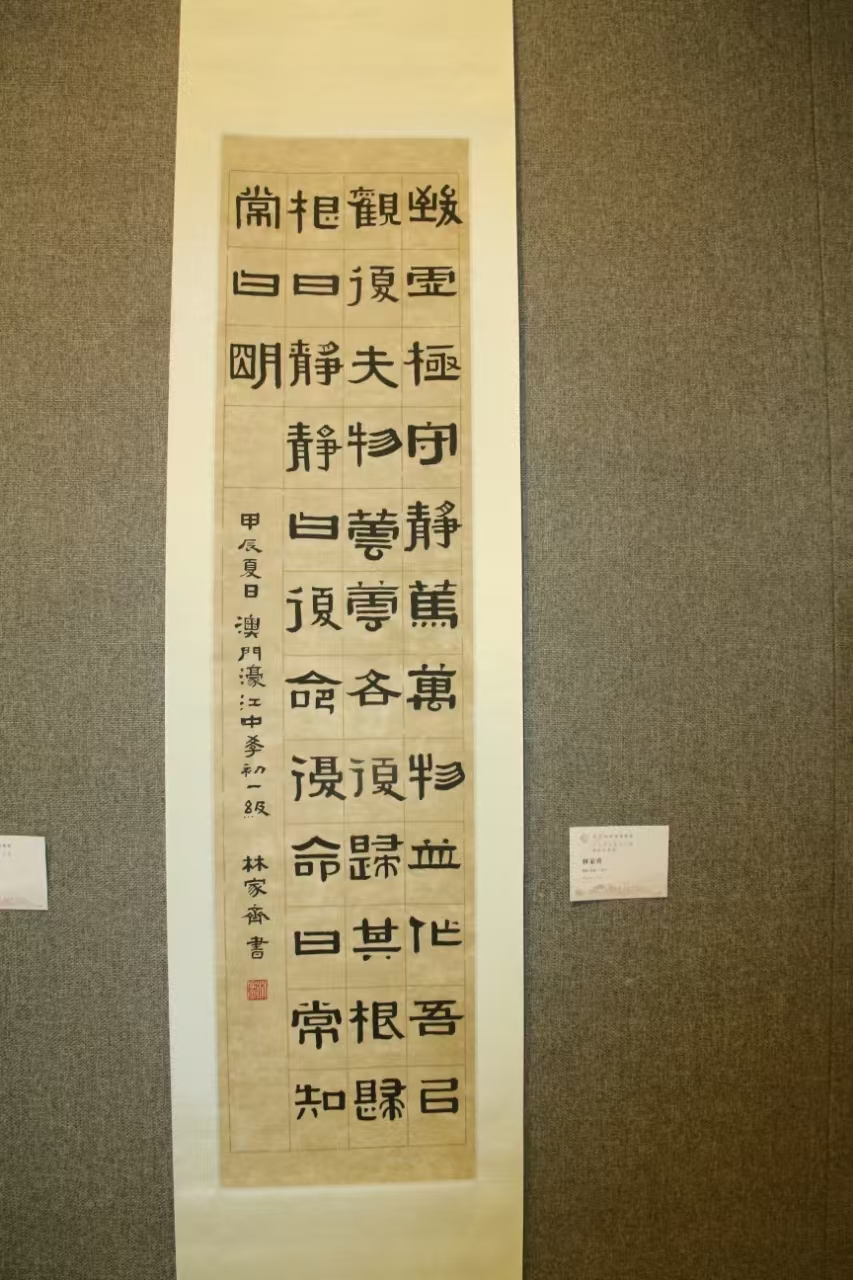 致虛極守靜篤萬物並作吾以
觀復夫物芸芸各復歸其根歸
根曰靜靜曰復命復命曰常知
常曰明
甲辰夏日 澳門濠江中學初一級 林家齊書